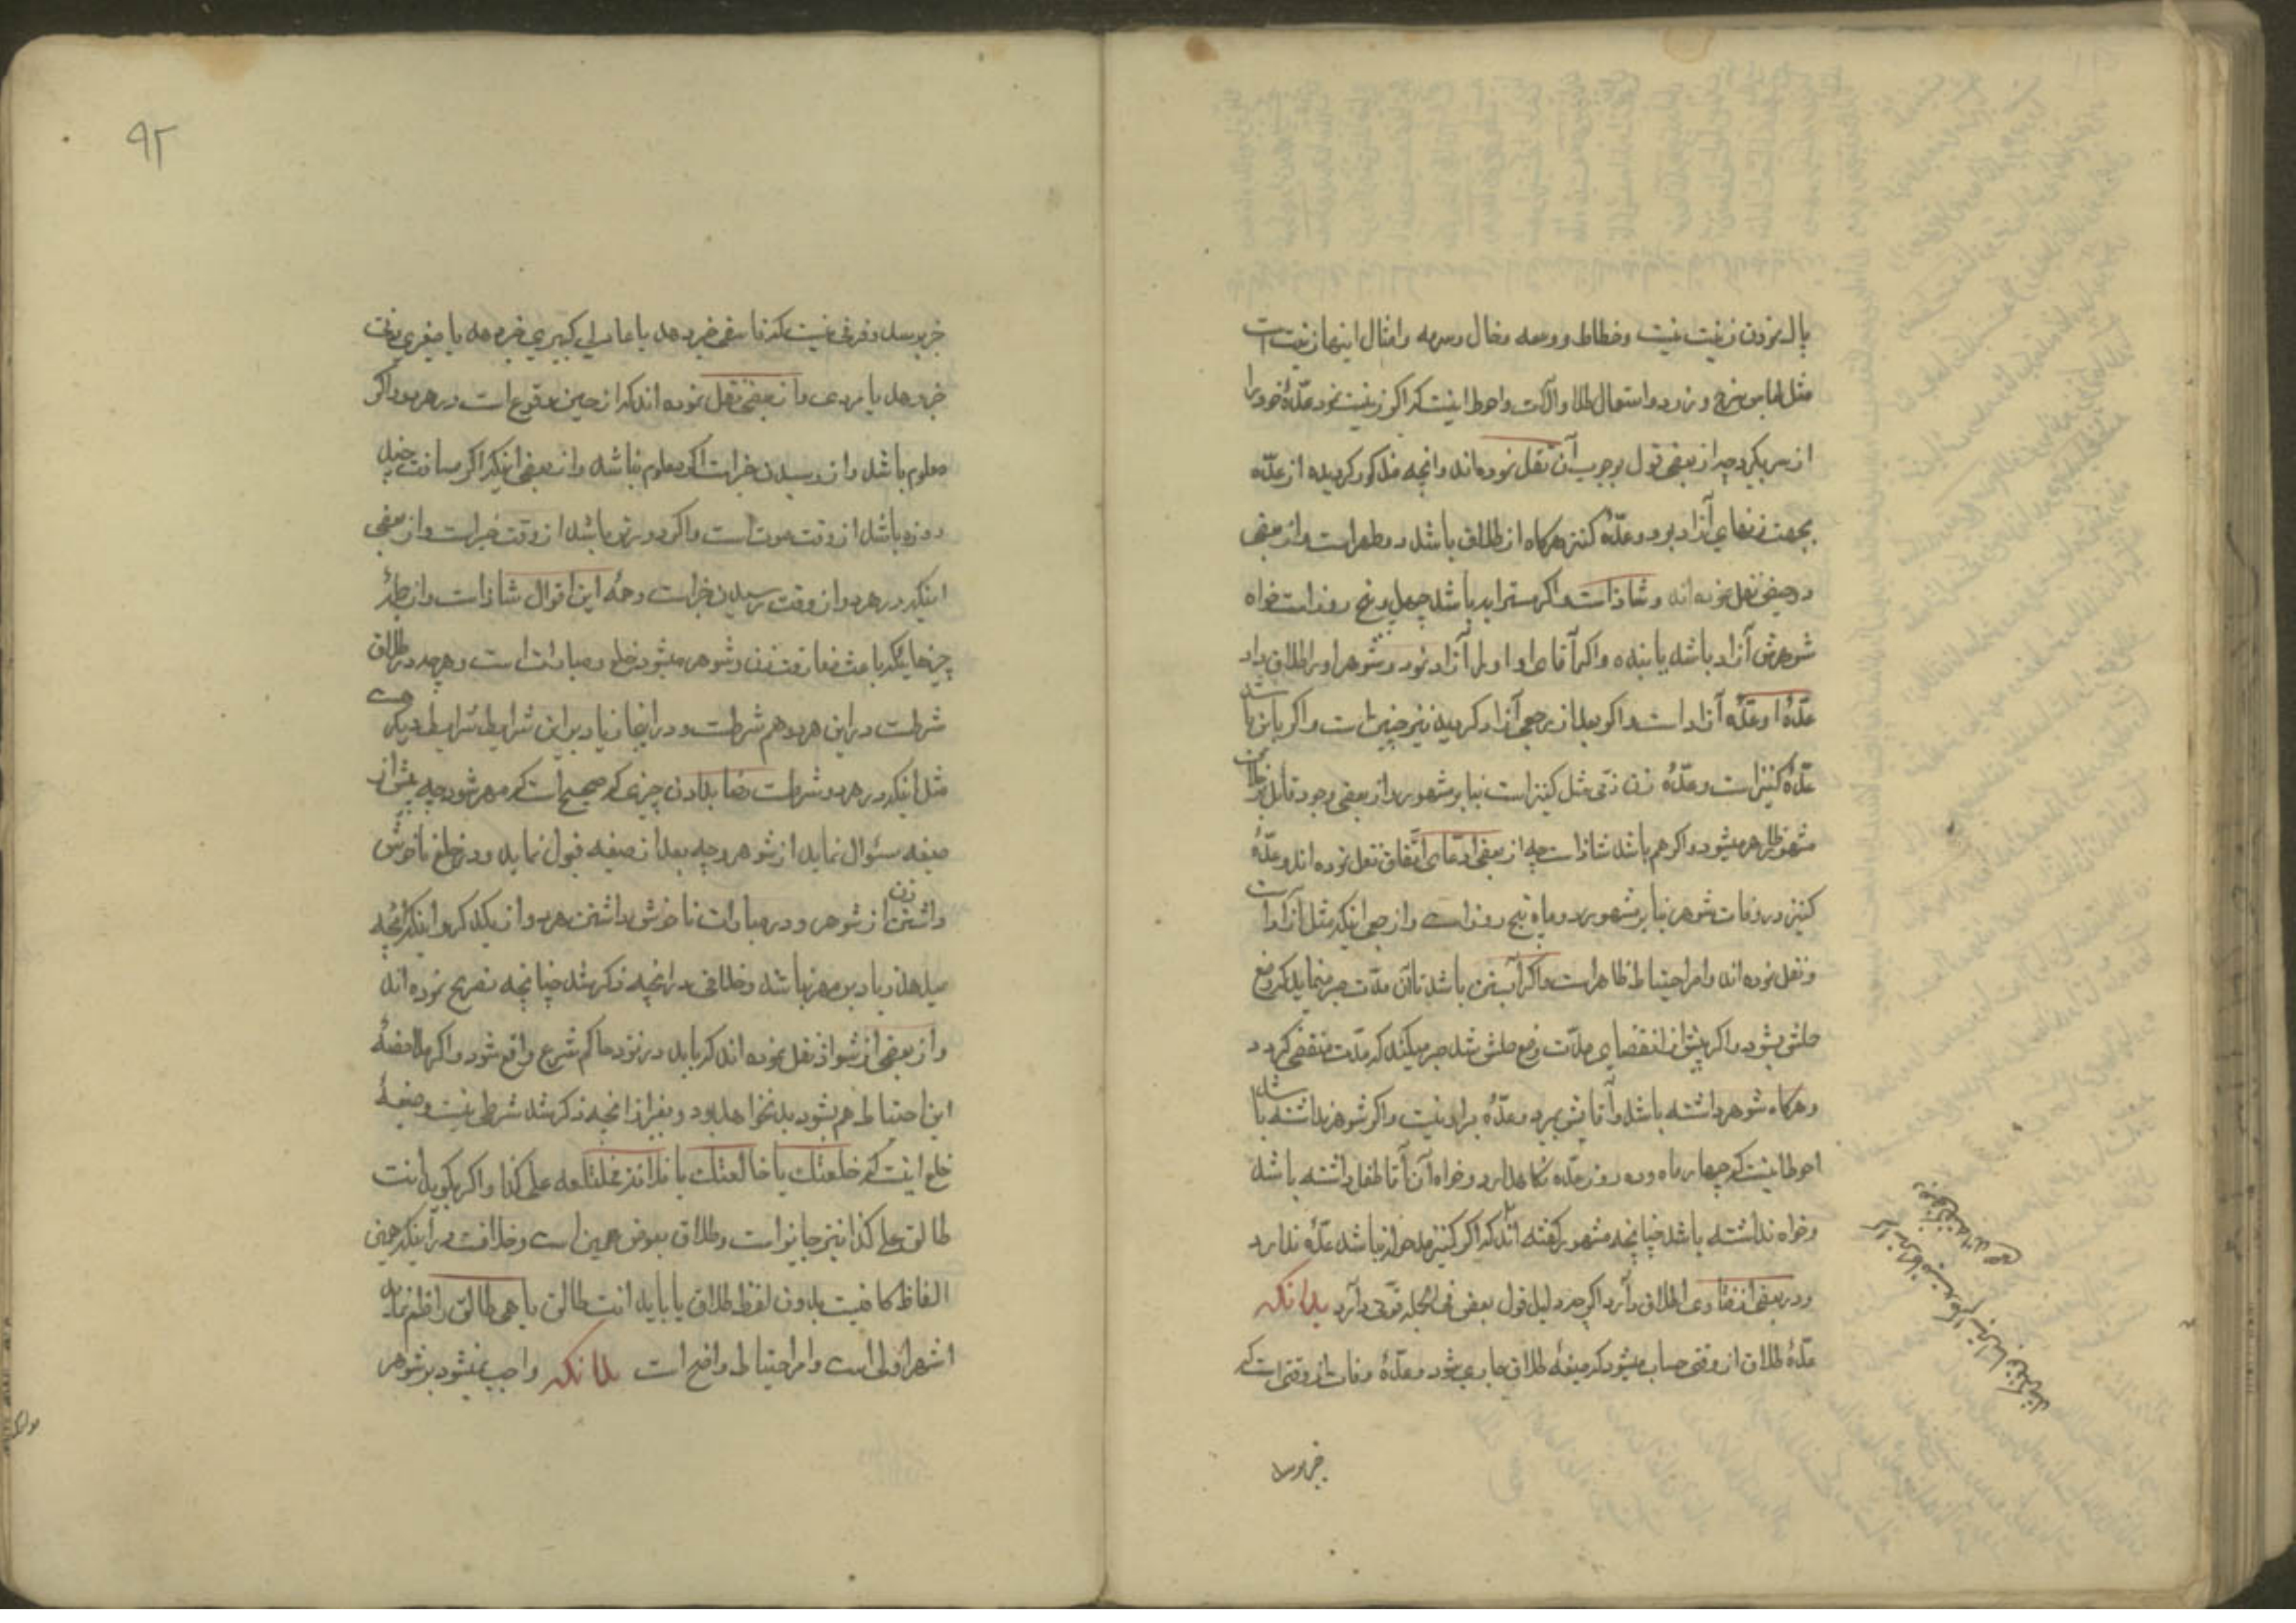 پاک نمودن زینت نیست و خطاط و وسمه و خال و سرمه و امثال اینها زینت است
مثل لباس سرخ و زرد و استعمال طلا و آلات و احوط اینست که اگر زینت نمود عدّهٔ خود را
از سر بگیرد چه از بعضی قول بوجوب آن نقل نموده‌اند و آنچه مذکور گردید از عدّه
بجهت زنهای آزاد بود و عدّهٔ کنیز هرگاه از طلاق باشد دو طهر است و از بعضی
دو حیض نقل نموده‌اند و شاذ است و اگر مسترابه باشد چهل و پنج روز است خواه
شوهرش آزاد باشد یا بنده و اگر آقای او او را آزاد نمود و شوهر او را طلاق داد
عدّهٔ او عدّهٔ آزاد است و اگر بعد از رجعی آزاد گردید نیز چنین است و اگر باین باشد
عدّهٔ کنیز است و عدّهٔ زن ذمّی مثل کنیز است بنا بر مشهور و از بعضی وجود قائل بخلاف
مشهور ظاهر میشود و اگر هم باشد شاذ است چه از بعضی ادّعای اتّفاق نقل نموده‌اند و عدّهٔ
کنیز در وفات شوهر بنا بر مشهور دو ماه و پنج روز است و از جمعی اینکه مثل آزاد است
و نقل نموده‌اند و امر احتیاط ظاهر است و اگر آبستن باشد تا آن مدّت صبر مینماید که وضع
حملش بشود و اگر پیش از انقضای مدّت وضع حملش شد صبر میکند که مدّت منقضی گردد
و هرگاه شوهر داشته باشد و آقایش بمیرد عدّه بر او نیست و اگر شوهر نداشته باشد
احوط اینست که چهار ماه و ده روز عدّه نگاهدارد و خواه از آن آقا طفل داشته باشد
و خواه نداشته باشد چنانچه مشهور گفته‌اند که اگر کنیز مدخوله نباشد عدّه ندارد
و در بعضی از فتاوی اطلاق دارد اگر چه دلیل قول بعض فی الجمله قوّتی دارد بدانکه
عدّهٔ طلاق از وقتی حساب میشود که صیغهٔ طلاق جاری شود و عدّهٔ وفات از وقتی است که
خبر برسد
۹۲
خبر برسد و فرقی نیست که فاسقی خبر دهد یا عادلی کبیری خبر دهد یا صغیری زنی
خبر دهد یا مردی و از بعضی نقل نموده‌اند که از حین وقوع است در هر دو اگر
معلوم باشد و از رسیدن خبر است اگر معلوم نباشد و از بعضی اینکه اگر مسافت چند
روزه باشد از وقت موت است و اگر دورتر باشد از وقت خبر است و از بعضی
اینکه در هر دو از وقت رسیدن خبر است و همهٔ این اقوال شاذ است و از جملهٔ
چیزهائیکه باعث مفارقت زن و شوهر میشود خلع و مبارات است و هر چه در طلاق
شرطست در این هر دو هم شرطست و در اینجا زیاد بر این شرایط شرایط دیگر هست
مثل اینکه در هر دو شرطست رضا بدادن چیزی که صحیح است که مهر شود چه پیش از
صیغه سئوال نماید از شوهر و چه بعد از صیغه قبول نماید و در خلع ناخوش
داشتن زن از شوهر و در مبارات ناخوش داشتن هر دو از یکدیگر و اینکه آنچه
میدهد زیاد بر مهر نباشد و خلافی در آنچه ذکر شد چنانچه تصریح نموده‌اند
و از بعضی از شواذ نقل نموده‌اند که باید در نزد حاکم شرع واقع شود و اگر ملاحظهٔ
این احتیاط هم بشود بد نخواهد بود و بغیر از آنچه ذکر شد شرطی نیست و صیغهٔ
خلع اینست که خلعتک یا خالعتک یا فلانه مختلعه علی کذا و اگر بگوید انت
طالق علی کذا نیز جایز است و طلاق بعوض همین است و خلافست در اینکه همین
الفاظ کافیست بدون لفظ طلاق یا باید انت طالق یا هی طالق را ضم نماید
اشهر اولی است و امر احتیاط واضح است بدانکه واجب نمیشود بر شوهر